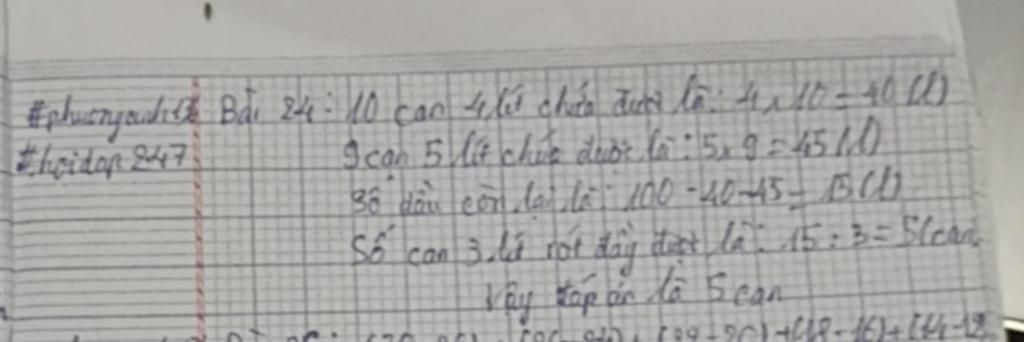 #phuonganh Bài 24: 10 can 4 lít chứa được là: 4 x 10 = 40 (l)
#hoidap247 9 can 5 lít chứa được là: 5 x 9 = 45 (l)
Số dầu còn lại là: 100 - 40 - 45 = 15 (l)
Số can 3 lít rót đầy được là: 15 : 3 = 5 (can)
Vậy đáp án là 5 can
+ (18 - 16) + (14 - 12)